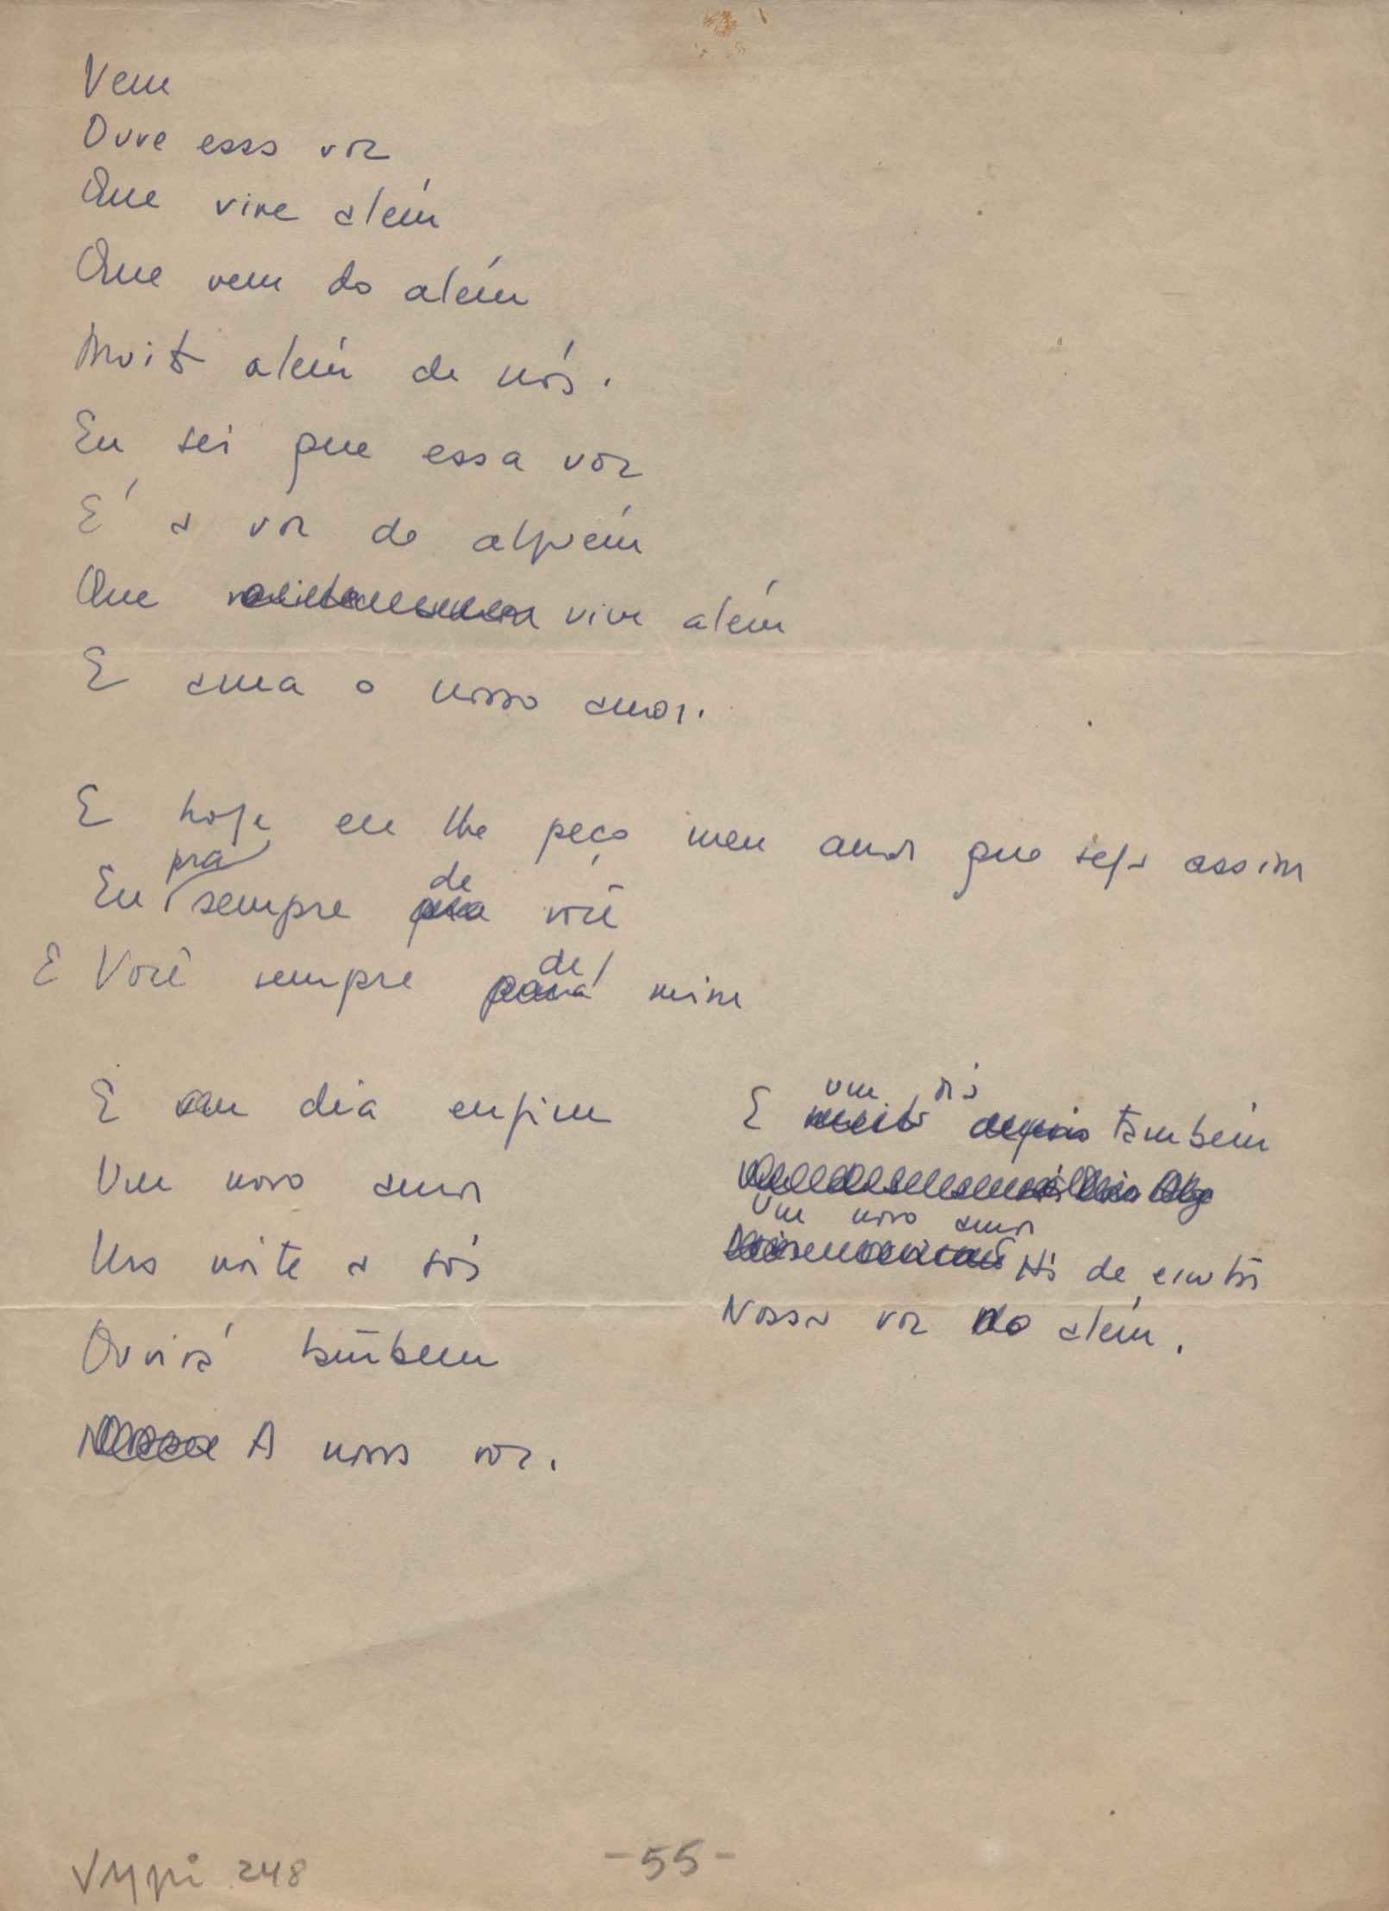 Vem
Ouve essa voz
Que vive além
Que vem do além
Muito além de nós.
Eu sei que essa voz
É a voz de alguém
Que vive além
E ama o nosso amor.
E hoje eu lhe peço meu amor que seja assim
prá
de
Eu sempre pra você
de
E Você sempre pará mim
E um dia enfim
Um novo amor
Uma noite a sós
Ouvirá também
Nossa A nossa voz.
um dia
E muito depois também
Um novo amor
Há de escutar
Nossa voz do além.
Vypi 248
-55-